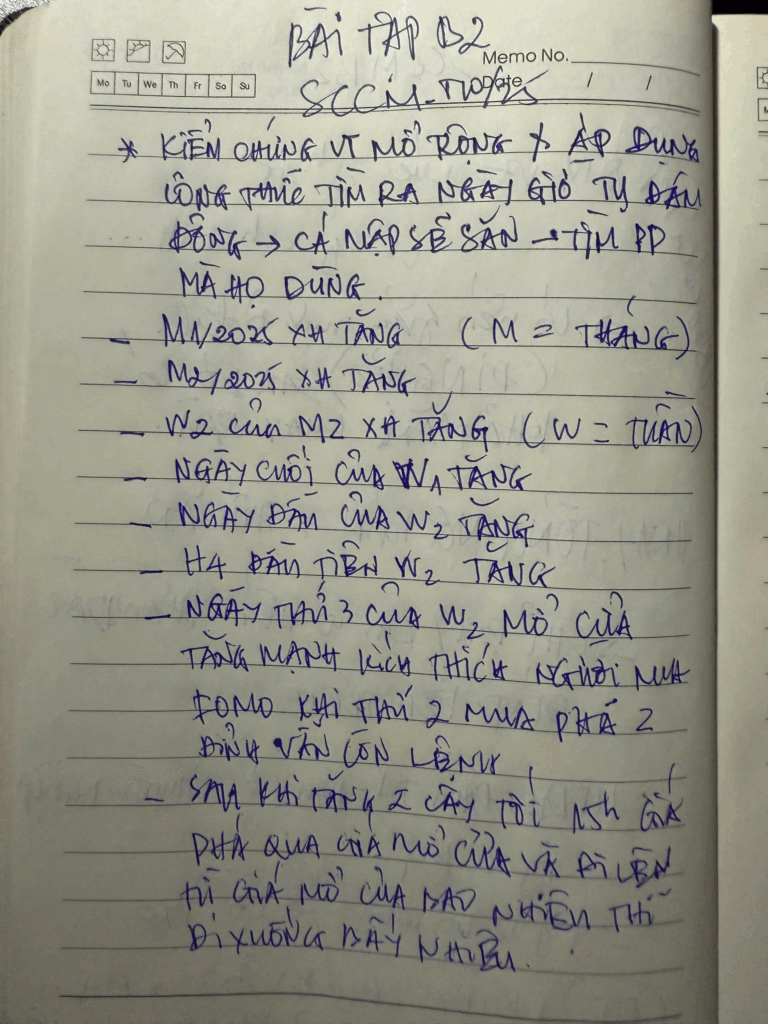 BÀI TẬP B2
Memo No.
Mo Tu We Th Fr Sa Su
Date / /
SCCM_T10/25
* KIỂM CHỨNG VT MỞ RỘNG & ÁP DỤNG
CÔNG THỨC TÌM RA NGÀY GIỜ TỤ ĐÁM
ĐÔNG → CÁ MẬP SẼ SĂN → TÌM PP
MÀ HỌ DÙNG.
- M1/2025 XH TĂNG (M = THÁNG)
- M2/2025 XH TĂNG
- W2 của M2 XH TĂNG (W = TUẦN)
- NGÀY CUỐI CỦA W1 TĂNG
- NGÀY ĐẦU CỦA W2 TĂNG
- H4 ĐẦU TIÊN W2 TĂNG
- NGÀY THỨ 3 CỦA W2 MỞ CỬA
TĂNG MẠNH KÍCH THÍCH NGƯỜI MUA
FOMO KHI THỨ 2 MUA PHÁ 2
ĐỈNH VẪN CÒN LỆNH
- SAU KHI TĂNG 2 CÂY TỚI 15h GIÁ
PHÁ QUA GIÁ MỞ CỬA VÀ ĐI LÊN
TỪ GIÁ MỞ CỬA BAO NHIÊU THÌ
ĐI XUỐNG BẤY NHIÊU.